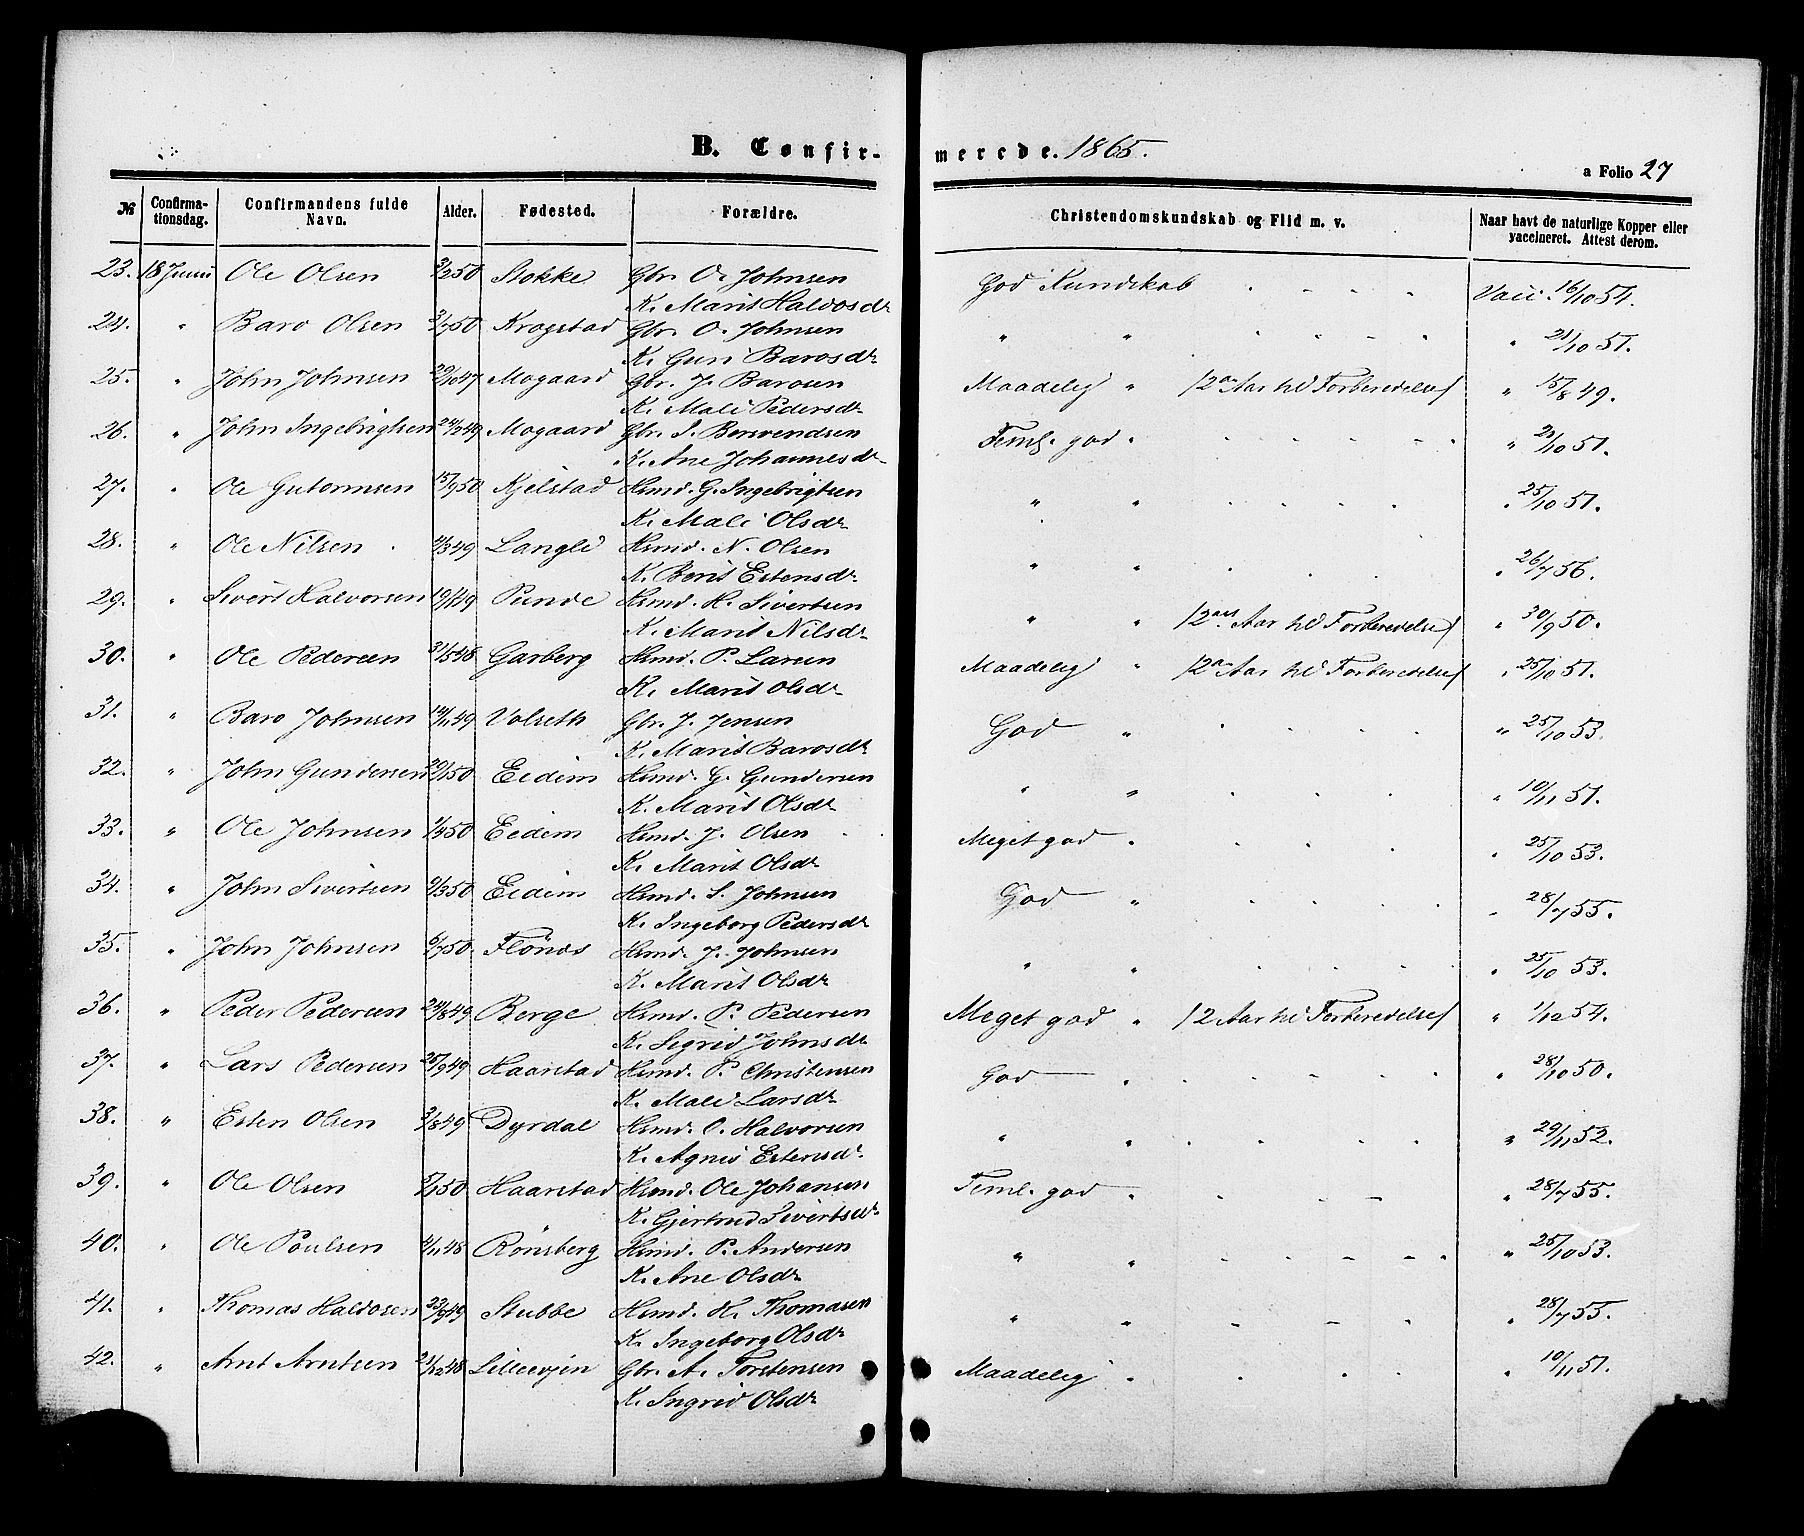 B. Confir- merede. 1865.
a Folio 27
№ Confirma-tionsdag. Confirmandens fulde Navn. Alder. Fødested. Forældre. Christendomskundskab og Flid m. v. Naar havt de naturlige Kopper eller vaccineret. Attest derom.
23. 18 Juni Ole Olsen 3/2 50 Stokke Gbr. O. Johnsen God Kundskab Vacc. 16/10 54.
K. Marit Halvosdr
24. " Baro Olsen 3/7 50 Krogstad Gbr. O. Johnsen " " " 21/10 51.
K. Guri Barosdr
25. " John Johnsen 20/10 47 Mogaard Gbr. J. Barosen Maadelig " 12 Aar til Forberedelse " 15/8 49.
K. Mali Pedersdr
26. " John Ingebrigtsen 24/2 49 Mogaard Gbr. I. Berevendsen Teml. god " 21/10 51.
K. Ane Johannesdr
27. " Ole Gutormsen 15/9 50 Kjelstad Hsmd. G. Ingebrigtsen " " " 25/10 51.
K. Mali Olsdr
28. " Ole Nilsen 4/3 49 Langli Hsmd. N. Olsen " " " 26/7 56.
K. Berit Estensdr
29. " Sivert Halvorsen 19/11 49 Punde Hsmd. H. Sivertsen " " 12 Aar til Forberedelse " 30/9 50.
K. Marit Nilsdr
30. " Ole Pedersen 31/5 48 Garberg Hsmd. P. Larsen Maadelig " 12 Aar til Forberedelse " 25/10 51.
K. Marit Olsdr
31. " Baro Johnsen 14/11 49 Volseth Gbr. J. Jensen God " " 25/10 53.
K. Marit Barosdr
32. " John Gundersen 20/1 50 Eidem Hsmd. G. Gundersen " " " 10/11 51.
K. Marit Olsdr
33. " Ole Johnsen 1/9 50 Eidem Hsmd. J. Olsen Meget god " " 25/10 53.
K. Marit Olsdr
34. " John Sivertsen 9/3 50 Eidem Hsmd. S. Johnsen God " " 28/7 55.
K. Ingeborg Pedersdr
35. " John Johnsen 6/7 50. Flönæs Hsmd. J. Johnsen " " " 25/10 53.
K. Marit Olsdr
36. " Peder Pedersen 24/8 49 Berge Hsmd. P. Pedersen Meget god " 12 Aar til Forberedelse " 1/12 54.
K. Sigrid Johnsdr
37. " Lars Pedersen 25/9 49 Haarstad Hsmd. P. Christensen God " " 28/10 50.
K. Mali Larsdr
38. " Esten Olsen 3/8 49 Dyrdal Hsmd. O. Halvorsen " " " 29/11 52.
K. Agnis Estensdr.
39. " Ole Olsen 5/1 50 Haarstad Hsmd. Ole Johansen Teml. god " " 28/7 55.
K. Gjertrud Sivertsdr
40. " Ole Poulsen 4/11 48 Rönsberg Hsmd. P. Andersen " " " 25/10 53.
K. Ane Olsdr
41. " Thomas Halvosen 23/9 49 Stubbe Hsmd. H. Thomasen " " " 28/7 55.
K. Ingeborg Olsdr
42. " Arnt Arntsen 21/12 48 Lilleevjen Gbr. A. Torstensen Maadelig " " 10/11 51.
K. Ingrid Olsdr